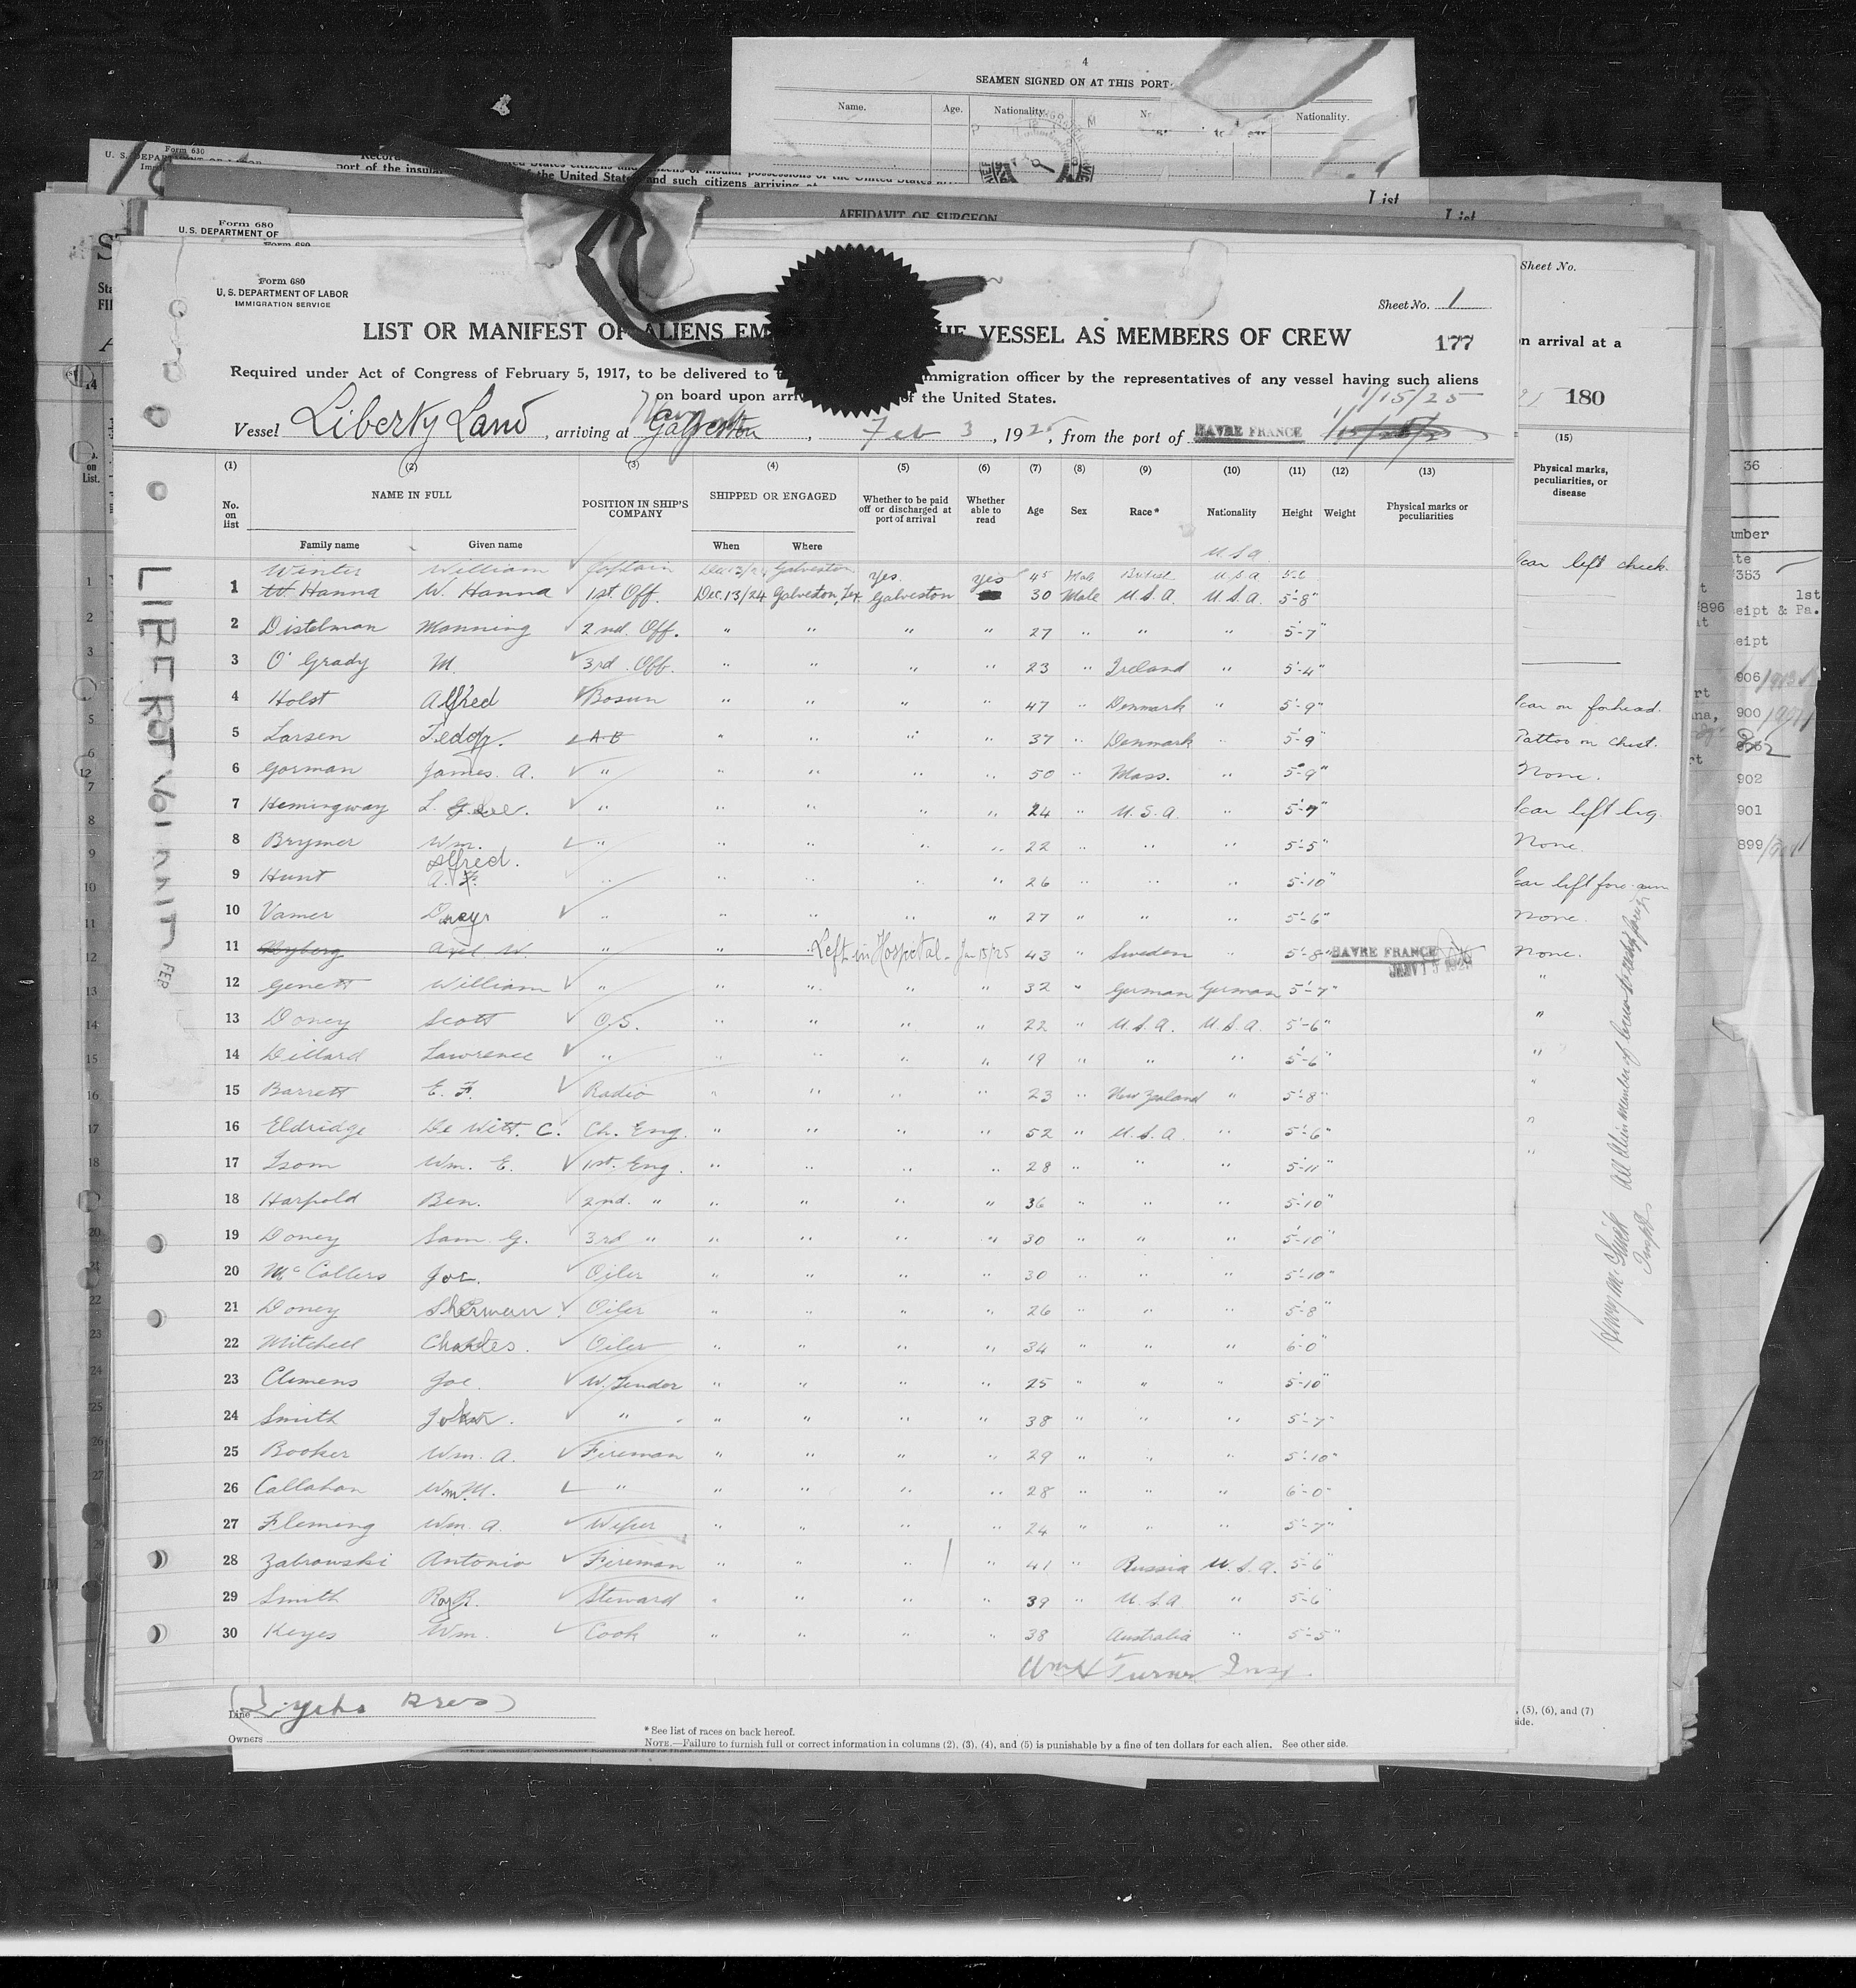 4
SEAMEN SIGNED ON AT THIS PORT
Name. Age. Nationality. Nationality.
Form 630
List List
AFFIDAVIT OF SURGEON
Form 680
U. S. DEPARTMENT OF
Form 680
U. S. DEPARTMENT OF LABOR
IMMIGRATION SERVICE
Sheet No.
Sheet No. 1
LIST OR MANIFEST OF ALIENS EM VESSEL AS MEMBERS OF CREW
177
n arrival at a
Required under Act of Congress of February 5, 1917, to be delivered to mmigration officer by the representatives of any vessel having such aliens
on board upon arri of the United States.
1/15/25
180
Vessel Liberty Land, arriving at Galveston, Feb 3, 1925, from the port of HAVRE FRANCE
(1) (2) (3) (4) (5) (6) (7) (8) (9) (10) (11) (12) (13) (15)
No. on list NAME IN FULL POSITION IN SHIP'S COMPANY SHIPPED OR ENGAGED Whether to be paid off or discharged at port of arrival Whether able to read Age Sex Race* Nationality Height Weight Physical marks or peculiarities
Physical marks, peculiarities, or disease
Family name Given name When Where
U.S.A.
Winter William Captain Dec 13/24 Galveston yes. yes 45 Male British U.S.A. 5-6
1 W. Hanna W. Hanna 1st. Off. Dec. 13/24 Galveston, Tex. Galveston 30 Male U.S.A. U.S.A. 5'-8"
2 Distelman Manning 2nd. Off. " " " " 27 " " " 5'-7"
3 O'Grady M. 3rd. Off. " " " " 23 " Ireland " 5'-4"
4 Holst Alfred Bosun " " " " 47 " Denmark " 5'-9"
5 Larsen Teddy. A-B " " " " 37 " Denmark " 5'-9"
6 Gorman James. A. " " " " " 50 " Mass. " 5'-9"
7 Hemingway L. " " " " " 24 " U.S.A. " 5'-7"
8 Brymer Wm. " " " " " 22 " " " 5'-5"
Alfred.
9 Hunt A. F. " " " " " 26 " " " 5'-10"
10 Vamer " " " " " 27 " " " 5'-6"
11 Nyberg Axel W. " " " Left in Hospital - Jan 15/25 43 " Sweden " 5'-8" HAVRE FRANCE
12 Genett William " " " " " 32 " German German 5'-7"
13 Doney Scott O.S. " " " " 22 " U.S.A. U.S.A. 5'-6"
14 Dillard Lawrence " " " " " 19 " " " 5'-6"
15 Barrett E. F. Radio " " " " 23 " New Zealand " 5'-8"
16 Eldridge De Witt. C. Ch. Eng. " " " " 52 " U.S.A. " 5'-6"
17 Isom Wm. E. 1st. Eng. " " " " 28 " " " 5'-11"
18 Harpold Ben. 2nd. " " " " " 36 " " " 5'-10"
19 Doney Sam. G. 3rd " " " " " 30 " " " 5'-10"
20 McCollers Joe. Oiler " " " " 30 " " " 5'-10"
21 Doney Sherman Oiler " " " " 26 " " " 5'-8"
22 Mitchell Charles. Oiler " " " " 34 " " " 6-0"
23 Clemens Joe. W. Tender " " " " 25 " " " 5'-10"
24 Smith John. " " " " " 38 " " " 5'-7"
25 Booker Wm. A. Fireman " " " " 29 " " " 5'-10"
26 Callahan Wm. M. " " " " " 28 " " " 6-0"
27 Fleming Wm. A. Wiper " " " " 24 " " " 5'-7"
28 Zabrowski Antonio Fireman " " " " 41 " Russia U.S.A. 5'-6"
29 Smith Roy R. Steward " " " " 39 " U.S.A. " 5'-6"
30 Keyes Wm. Cook " " " " 38 " Australia " 5'-5"
Wm H Turner Insp.
Line (Lykes Bros)
Owners
* See list of races on back hereof.
NOTE.—Failure to furnish full or correct information in columns (2), (3), (4), and (5) is punishable by a fine of ten dollars for each alien. See other side.
, (5), (6), and (7)
side.
car left cheek.
car on forhead.
Tattoo on Chest.
None.
car left leg.
None.
car left fore-arm
None.
None.
36
906
900
902
901
899